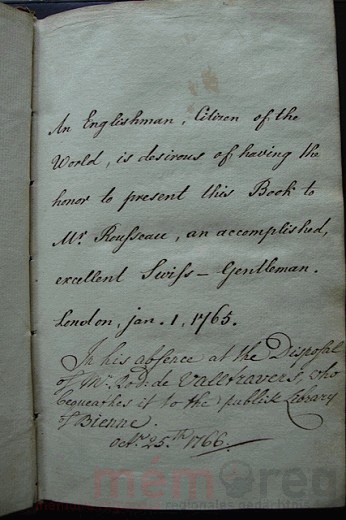 An Englishman, Citizen of the
World, is desirous of having the
honor to present this Book to
Mr. Rousseau, an accomplished,
excellent Swiss – Gentleman.
London, jan. 1, 1765.
In his absence at the Disposal
of Mr. Rod. de Valltravers, who
bequeathes it to the publik Library
of Bienne.
Octr. 25.th 1766.
memoreg
regionales gedächtnis